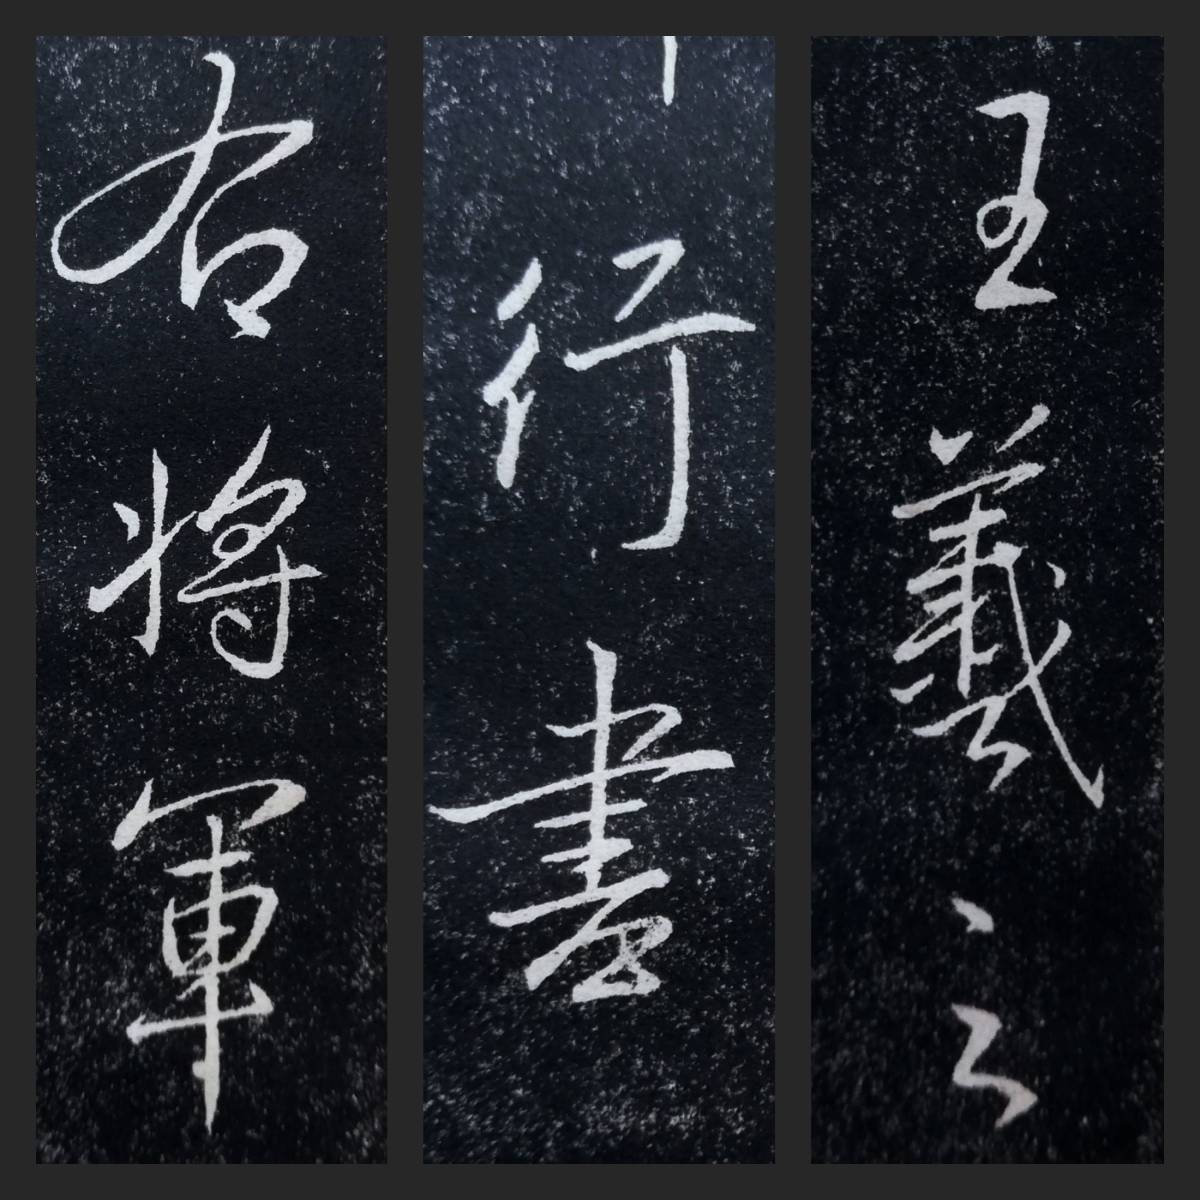 王羲之
行書
右將軍